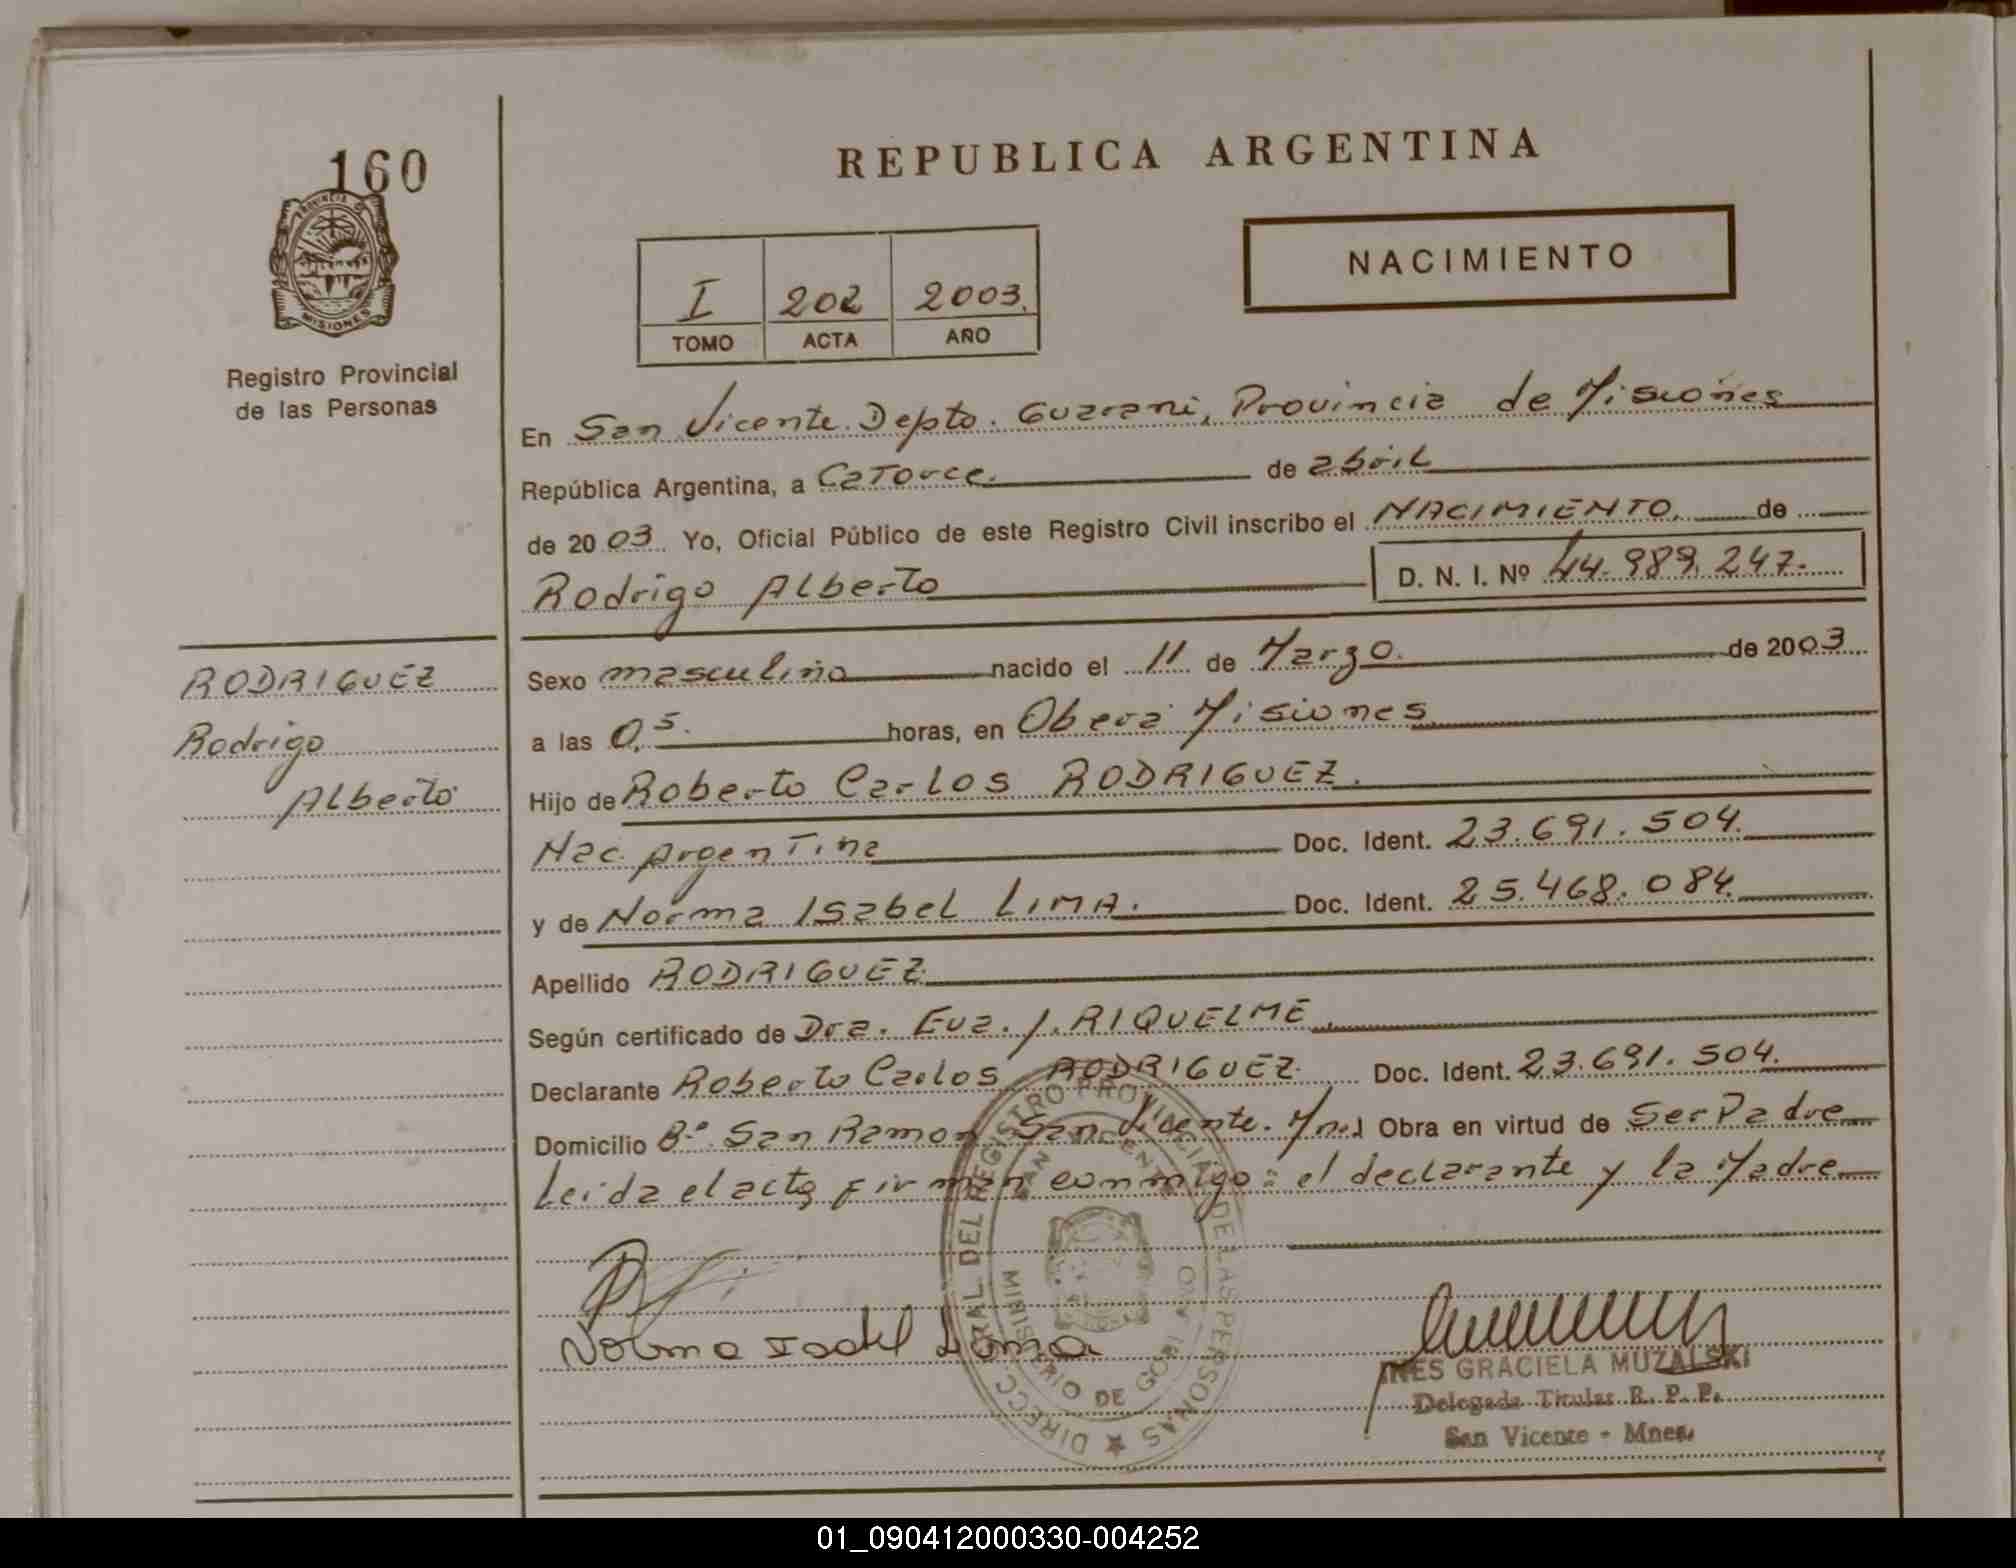 160
PROVINCIA D
MISIONES
Registro Provincial
de las Personas
REPUBLICA ARGENTINA
I 202 2003.
TOMO ACTA AÑO
NACIMIENTO
En San Vicente. Depto. Guarani, Provincia de Misiones
República Argentina, a Catorce. de abril
de 2003. Yo, Oficial Público de este Registro Civil inscribo el NACIMIENTO. de
Rodrigo Alberto D. N. I. Nº 44.989.247.
RODRIGUEZ
Rodrigo
Alberto
Sexo masculino nacido el 11 de Marzo. de 2003
a las 0,5. horas, en Obera Misiones
Hijo de Roberto Carlos RODRIGUEZ.
Nac. Argentina Doc. Ident. 23.691.504.
y de Norma Isabel LIMA. Doc. Ident. 25.468.084.
Apellido RODRIGUEZ
Según certificado de Dra. Eva. J. RIQUELME
Declarante Roberto Carlos RODRIGUEZ. Doc. Ident. 23.691.504.
Domicilio Bº. San Ramon San Vicente. Mnes. Obra en virtud de Ser Padre
Leida el acta firman conmigo: el declarante y la Madre
DIRECC RAL DEL REGISTRO PROVINCIAL DE LAS PERSONAS
SAN VICENTE
MINISTERIO DE GOBIERNO
Norma Isabel Lima
INES GRACIELA MUZALSKI
Delegada Titular R. P. P.
San Vicente - Mnes.
01_090412000330-004252